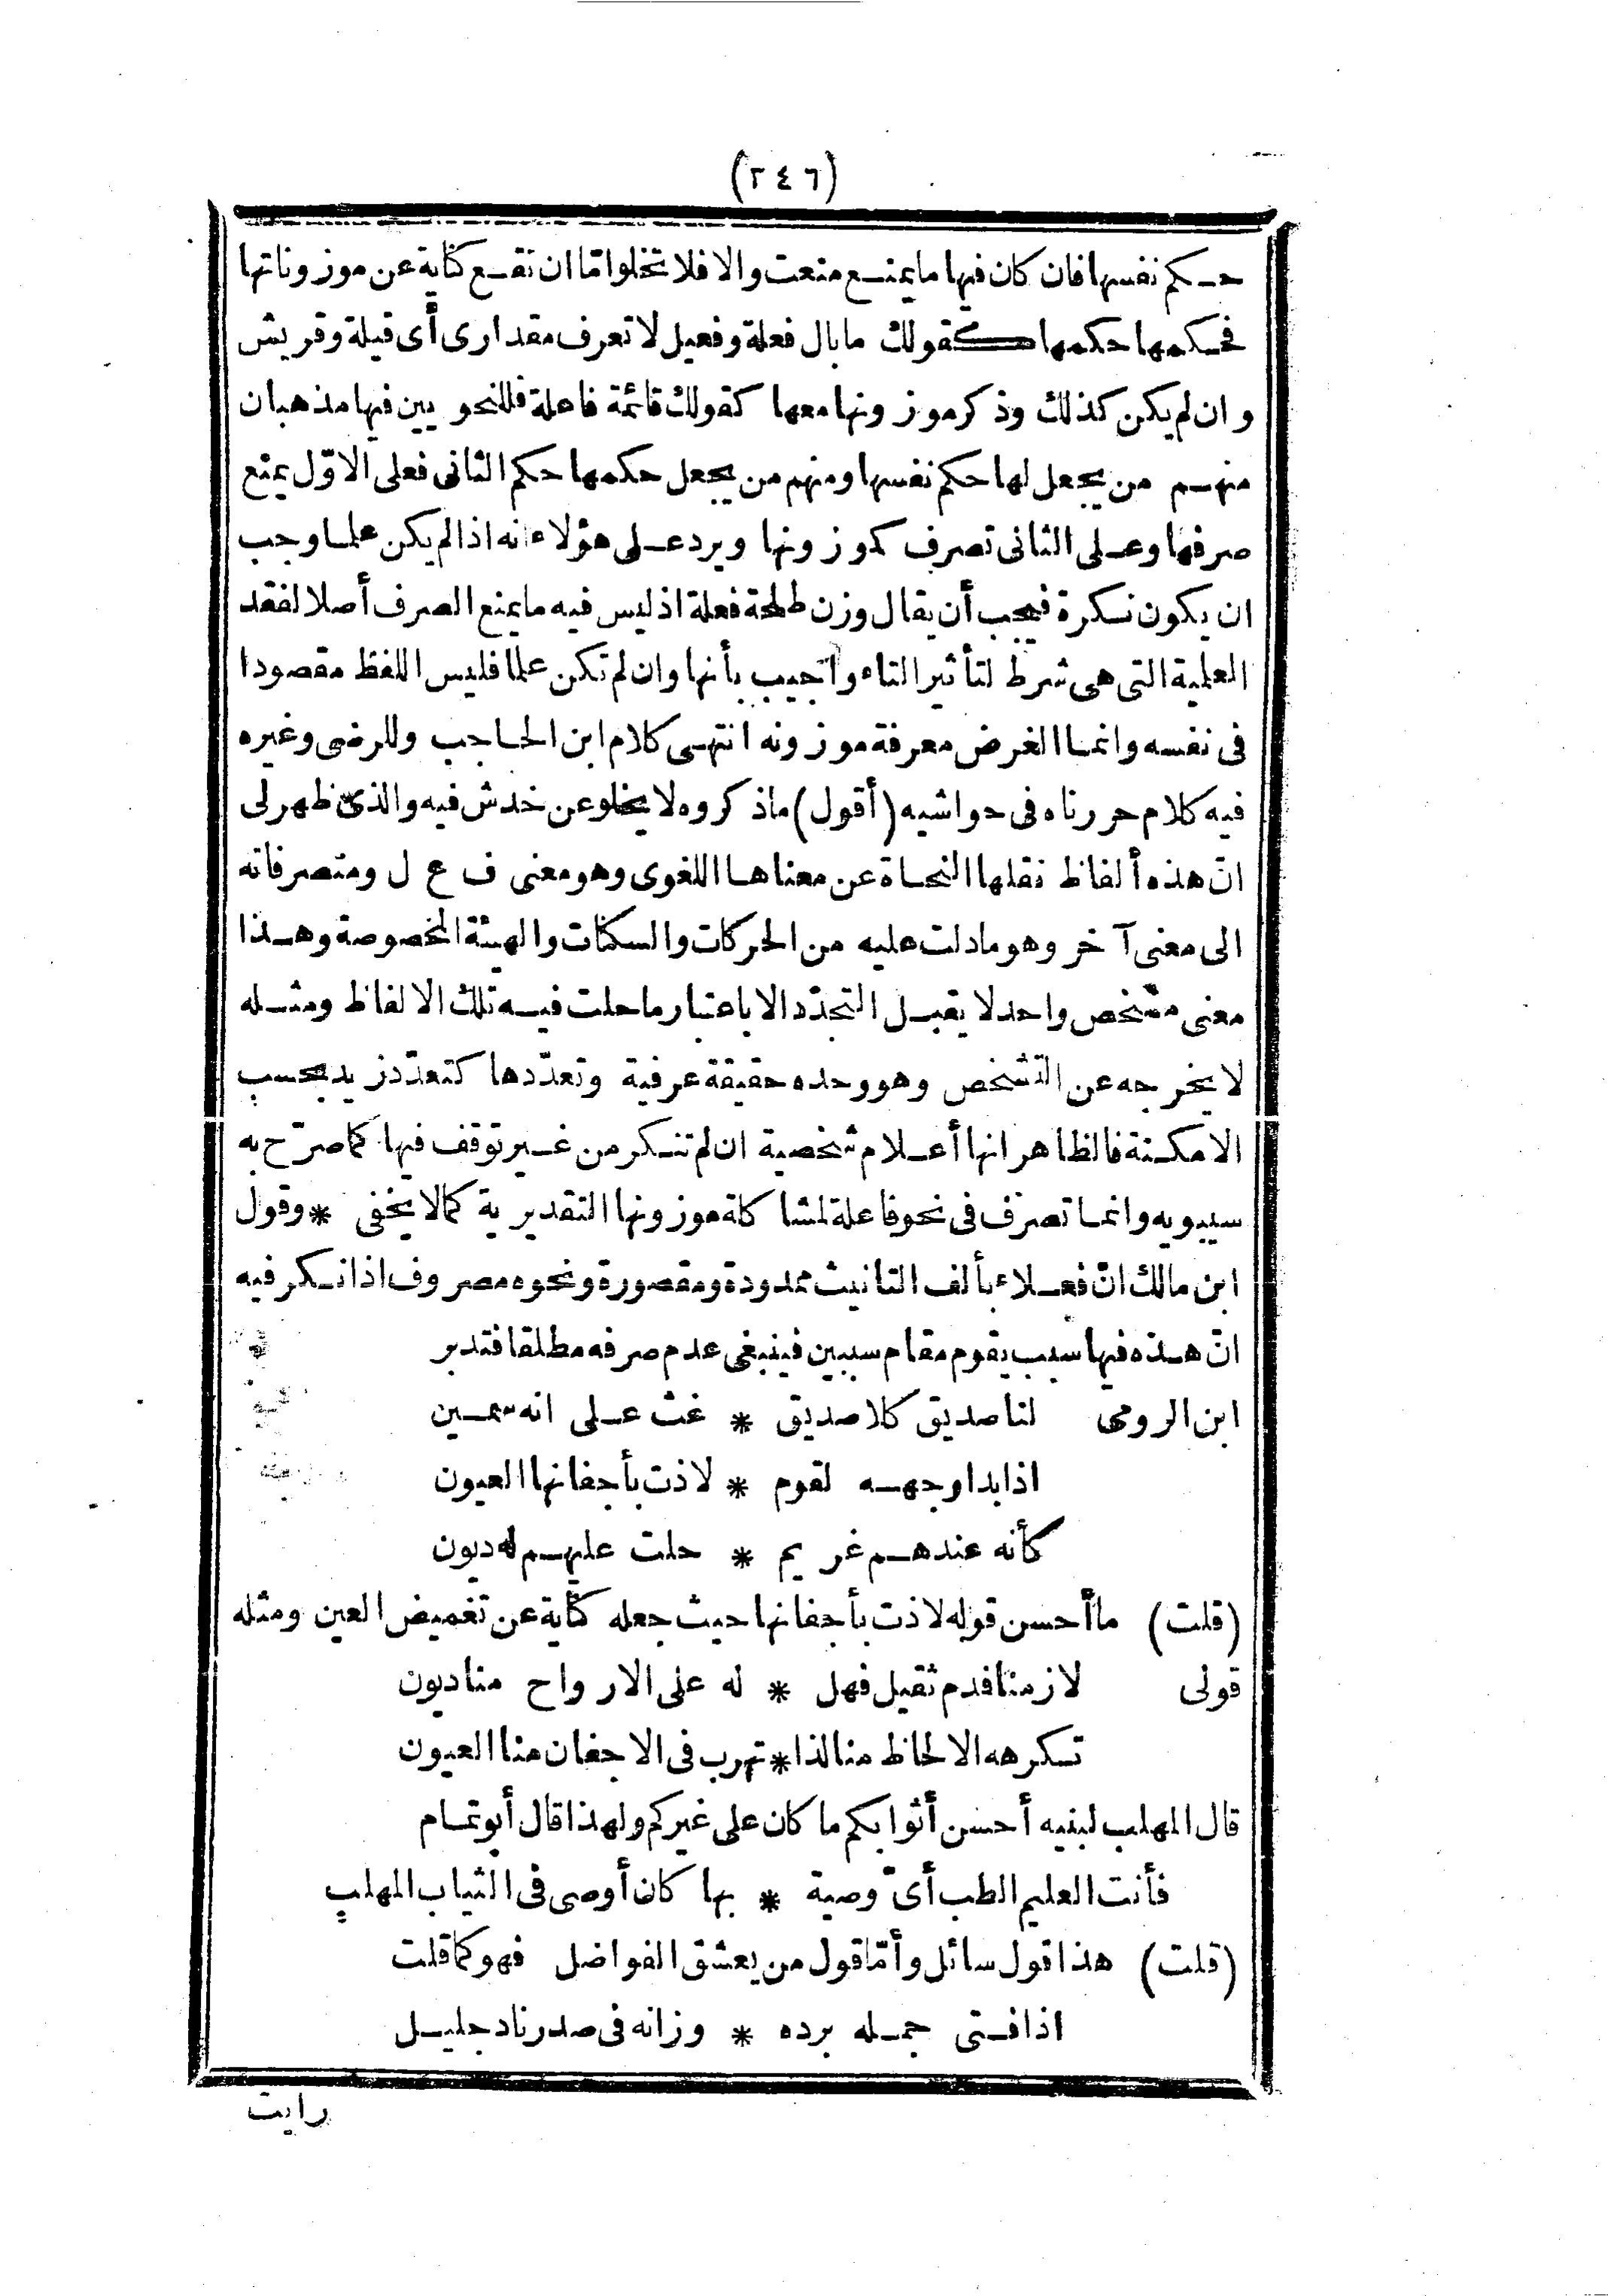 (٢٤٦)
حكم نفسها فان كان فيها ما يمنع منعت والا فلا تخلوا ما ان تقع كناية عن موزوناتها
فحكمها حكمها كقولك ما بال فعلة وفعيل لا تعرف مقدارى أى قيلة وقريش
وان لم يكن كذلك وذكر موزونها معها كقولك قائمة فاعلة فللنحويين فيها مذهبان
منهم من يجعل لها حكم نفسها ومنهم من يجعل حكمها حكم الثانى فعلى الاوّل يمنع
صرفها وعلى الثانى تصرف كموزونها ويرد على هؤلاء انه اذا لم يكن علما وجب
ان يكون نكرة فيجب أن يقال وزن طلحة فعلة اذ ليس فيه ما يمنع الصرف أصلا لفقد
العلمية التى هى شرط لتأثير التاء وأجيب بأنها وان لم تكن علما فليس اللفظ مقصودا
فى نفسه وانما الغرض معرفة موزونه انتهى كلام ابن الحاجب وللرضى وغيره
فيه كلام حررناه فى حواشيه (أقول) ما ذكروه لا يخلو عن خدش فيه والذى ظهر لى
انّ هذه ألفاظ نقلها النحاة عن معناها اللغوى وهو معنى ف ع ل ومتصرفاته
الى معنى آخر وهو ما دلت عليه من الحركات والسكنات والهيئة المخصوصة وهذا
معنى مشخص واحد لا يقبل التجدّد الا باعتبار ما حلت فيه تلك الالفاظ ومثله
لا يخرجه عن التشخص وهو وحده حقيقة عرفية وتعدّدها كتعدّد زيد بحسب
الامكنة فالظاهر انها أعلام شخصية ان لم تنكر من غير توقف فيها كما صرّح به
سيبويه وانما تصرف فى نحو فاعلة لمشاكلة موزونها التقديرية كما لا يخفى * وقول
ابن مالك انّ فعلاء بألف التانيث ممدودة ومقصورة ونحوه مصروف اذا نكر فيه
انّ هذه فيها سبب يقوم مقام سببين فينبغى عدم صرفه مطلقا فتدبر
ابن الرومى لنا صديق كلا صديق * غث على انه سمين
اذا بدا وجهه لقوم * لاذت بأجفانها العيون
كأنه عندهم غريم * حلت عليهم له ديون
(قلت) ما أحسن قوله لاذت بأجفانها حيث جعله كناية عن تغميض العين ومثله
قولى لازمنا فدم ثقيل فهل * له على الارواح منا ديون
تسكرهه الالحاظ منا لذا * تهرب فى الاجفان منا العيون
قال المهلب لبنيه أحسن أثوابكم ما كان على غيركم ولهذا قال أبو تمام
فأنت العليم الطب أىّ وصية * بها كان أوصى فى الثياب المهلب
(قلت) هذا قول سائل وأمّا قول من يعشق الفواضل فهو كما قلت
اذا فتى جمله برده * وزانه فى صدر ناد جليل
رايت